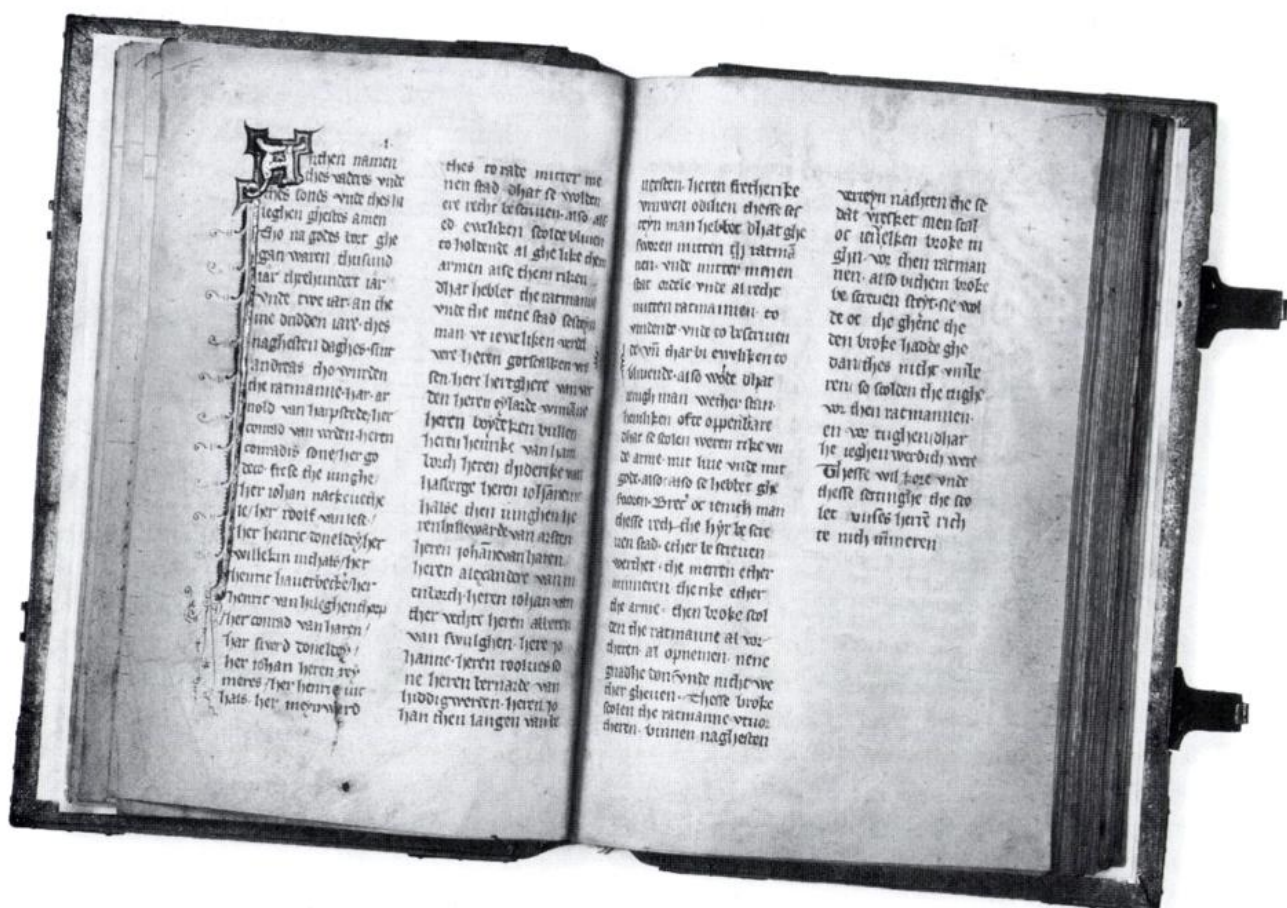 ·1·
An then namen
thes vaderes vnde
thes sones vnde thes hi
leghen gheistes amen
tho na godes bort ghe
gan waren thusund
iar threhundert iar
vnde twe iar an the
me dridden iare thes
naghesten daghes sint
andreas tho wurden
the ratmanne har ar
nold van harpstede/her
conrad van verden heren
conradis sone/her go
deco frese the iunghe/
her iohan
her roolf
her henric doneldey/her
willekin
henric hauerbecke/her
henric van hileghenthorp
/her conrad van haren/
har siverd doneldey/
her iohan heren rey
meres/her henric
her meynward
thes to rade mitter me
nen stad dhat se wolden
ere recht bescriuen also als
ed eweliken scolde bliuen
to holdende al ghe like them
armen alse them riken
dhar hebbet the ratmanne
vnde the mene stad
man vt ieweliken verdel
vere heren gotscalken
sen here herghere van ver
den heren eylarde
heren
heren heinrike van ham
borch heren thiderike van
hasberge heren iohanne
then iunghen he
ren van arsten
heren johanne van haren
heren alexandere van
heren iohan van
ther vechte heren alberte
van swulghen here jo
hanne heren rooluesso
ne heren bernarde van
hiddigwerden heren jo
han then langen
uersten heren fretherike
vruwen thesse ses
teyn man hebbet dhat ghe
sworen mitten ratman
nen vnde mitter menen
stat ordele vnde al recht
mitten ratmannen to
vindende vnde to bescriuen
de vn thar bi eweliken to
bliuende also dhat
iengh man wether
henliken ofte oppenbare
dhat se scolen weren rike vn
de arme mit liue vnde mit
gode also also se hebbet ghe
sworen Brect oc ienich man
thesse recht the hyr be scre
uen stad ether be screuen
werthet the meren ether
minneren the rike ether
the arme then broke scol
den the ratmanne al vor
theren al opnemen nene
gnadhe don vnde nicht we
ther gheuen Thesse broke
scolen the ratmanne vtuor
theren binnen naghesten
verteyn nachten the se
dat vresket men scal
oc iewelken broke tu
ghen vor then ratman
nen also bi them broke
be screuen steyt sie wol
de oc the ghene the
den broke hadde ghe
dan thes nicht
ren so scolden the tughe
vor then ratmannen
en vor tughen dhar
he ieghen werdich were
Thesse wilkore vnde
thesse settinghe the sco
let vnses heren rich
te nich mineren